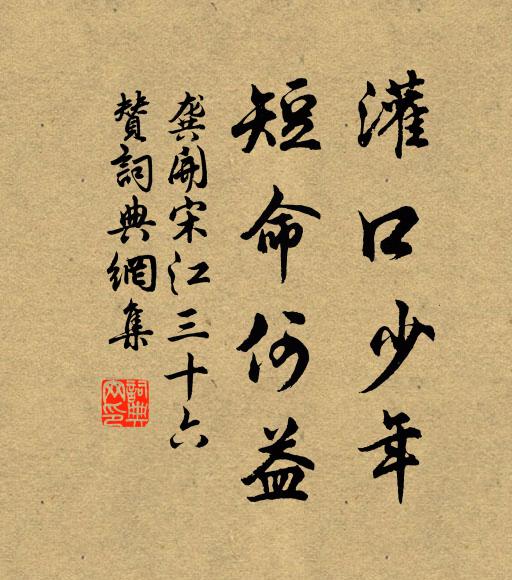 灌口少年
短命何益
龔開宋江三十六
贊詞典網集
詞典
网印